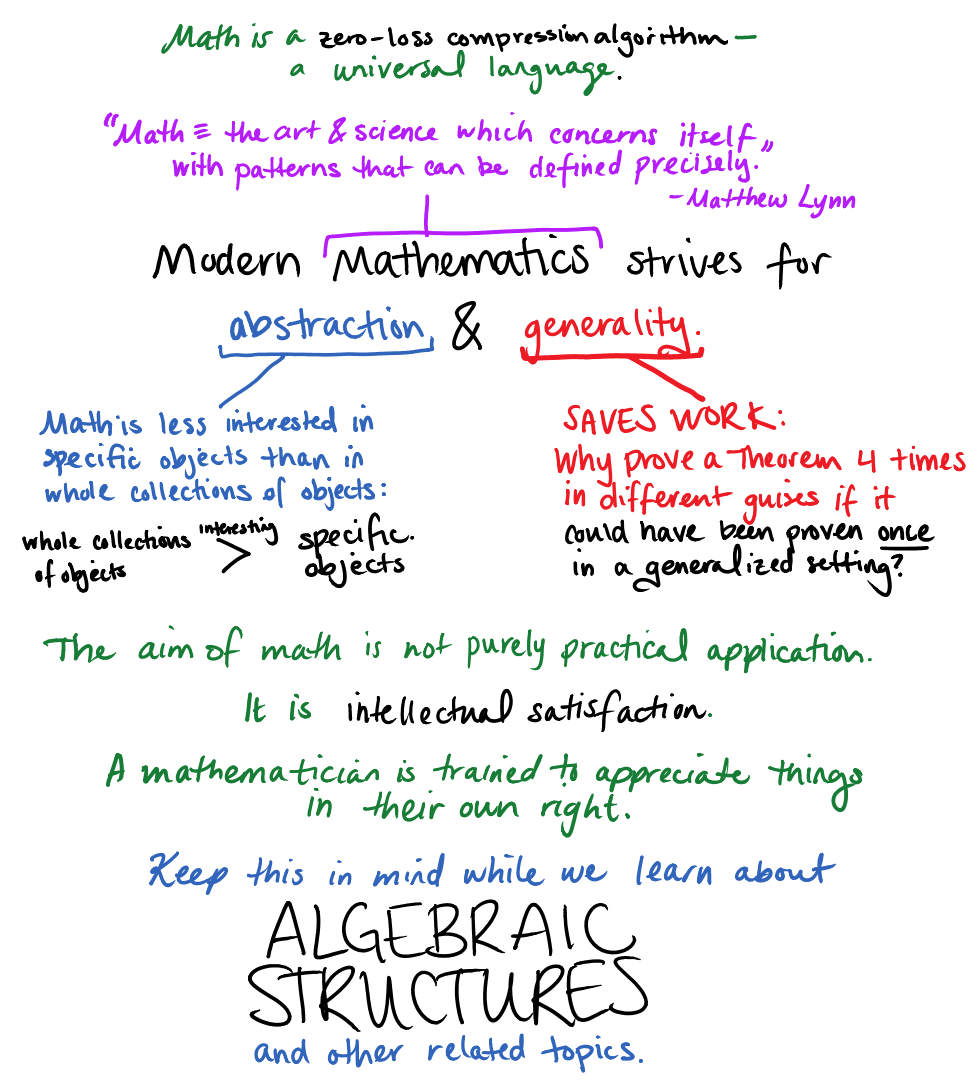 Math is a zero-loss compression algorithm —
a universal language.
"Math ≡ the art & science which concerns itself
with patterns that can be defined precisely."
-Matthew Lynn
Modern Mathematics strives for
abstraction & generality.
Math is less interested in
specific objects than in
whole collections of objects:
whole collections
of objects
interesting
>
specific.
objects
SAVES WORK:
Why prove a Theorem 4 times
in different guises if it
could have been proven once
in a generalized setting?
The aim of math is not purely practical application.
It is intellectual satisfaction.
A mathematician is trained to appreciate things
in their own right.
Keep this in mind while we learn about
ALGEBRAIC
STRUCTURES
and other related topics.